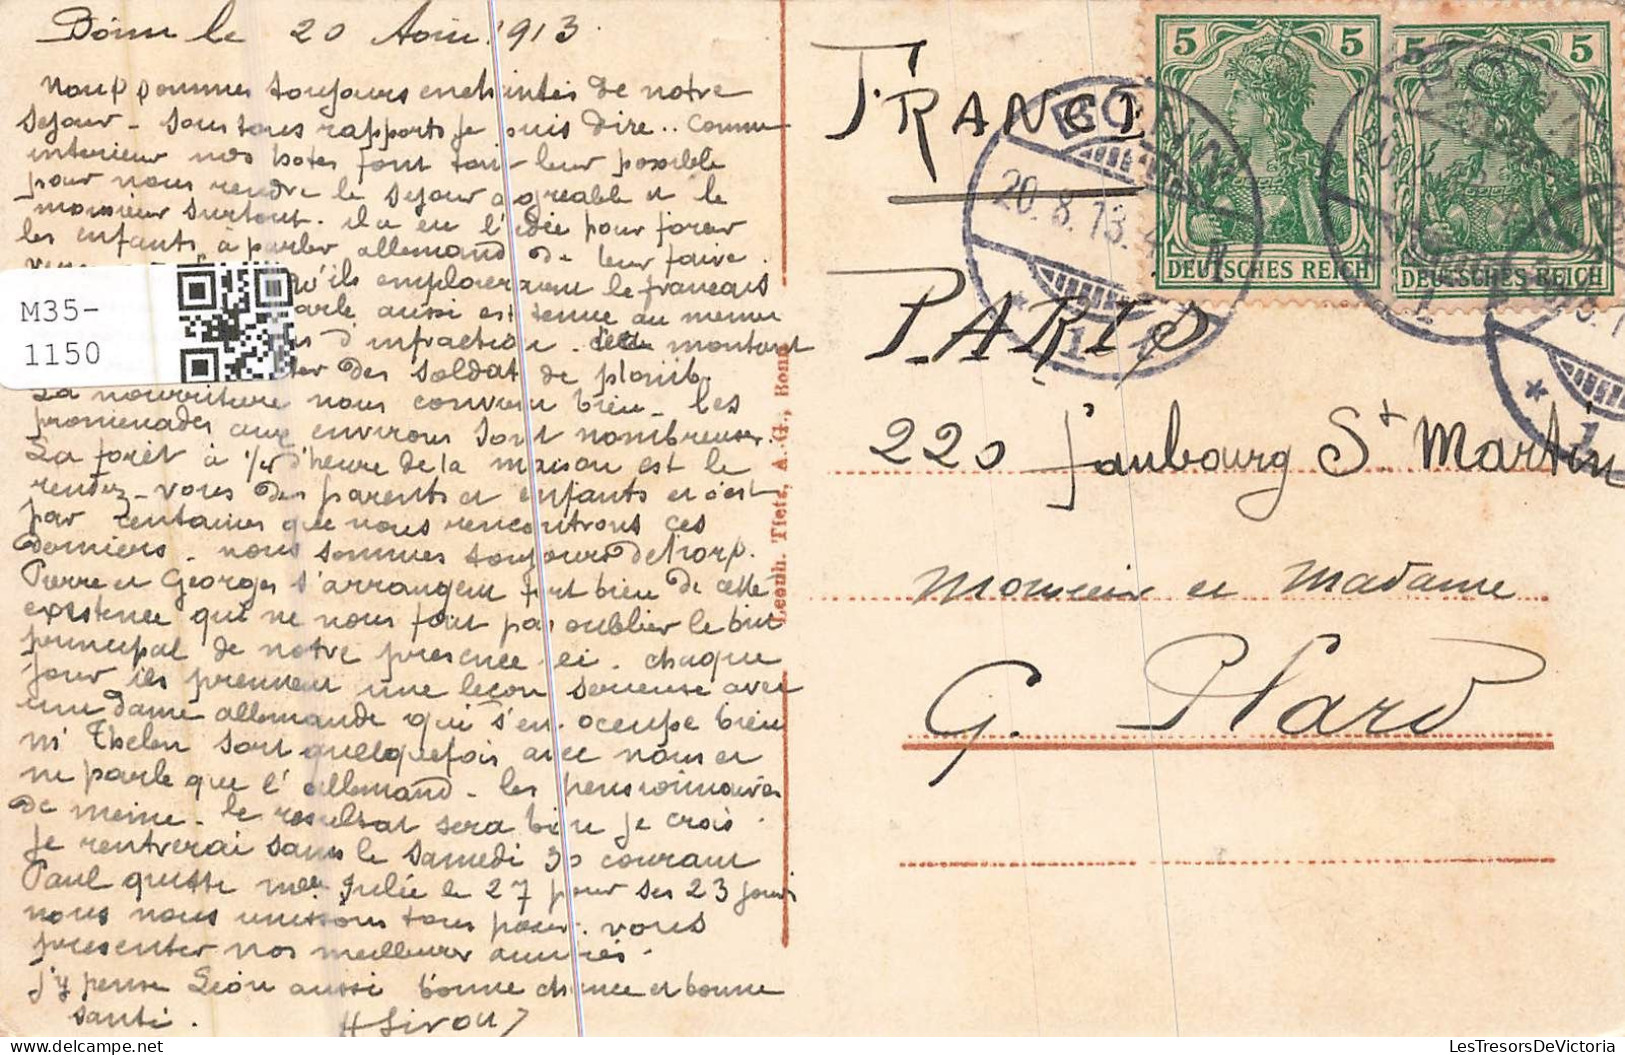 Bonn le 20 Aout 1913.
Nous sommes toujours enchantés de notre
sejour - sous tous rapports je puis dire.. comme
interieur nos hotes font tout leur possible
pour nous rendre le sejour agreable et le
monsieur surtout. il a eu l'idée pour forcer
les enfants à parler allemand de leur faire
qu'ils emploieraient le francais
parle aussi est tenue au meme
d'infraction. montant
des soldat de plomb.
La nourriture nous convient bien - les
promenades aux environs sont nombreuses.
La forêt à 1/4 d'heure de la maison est le
rendez-vous des parents et enfants et c'est
par centaines que nous rencontrons ces
derniers - nous sommes toujours dehors.
Pierre et Georges s'arrangent fort bien de cette
existence qui ne nous fait pas oublier le but
principal de notre presence ici. chaque
jour ils prennent une leçon serieuse avec
une dame allemande qui s'en occupe bien
Mr Thelen sort quelquefois avec nous et
ne parle que l'allemand - les pensionnaires
de meme - le resultat sera bien je crois.
Je rentrerai sans le samedi 30 courant
Paul quitte Julie le 27 pour ses 23 jours
nous nous unissons tous pour vous
presenter nos meilleures amitiés.
j'y pense Léon aussi bonne chance et bonne
santé. H Sirou
M35-
1150
Leonh. Tietz, A.-G., Bonn
FRANCE
PARIS
220 faubourg St Martin
Monsieur et Madame
G. Plard
5 5
DEUTSCHES REICH
5 5
DEUTSCHES REICH
BONN
20.8.13.
* 1
LesTresorsDeVictoria.com